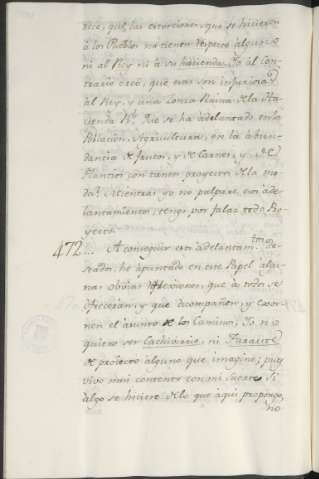 dice, que las exenciones, que se hicieren
à los Pueblos no tienen respecto alguno
ni al Rey ni à su hacienda. Yo al Con-
trario creo, que eran son injuriosas
al Rey, y una Total Ruina de la Ha-
cienda Rl. Que se ha adelantado en la
Poblacion, Agricultura, en la abun-
dancia de frutos, y de Carnes, y de
Plantios con tantos proyectos de la mo-
da? Mientras yo no palpare esos ade-
lantamientos, tengo por falso todo Pro-
yecto.
472... A conseguir estos adelantam.tos de-
seados, he apuntado en este Papel algu-
nas obvias reflexiones, que à todos se
ofrecerian, y que acompañen, y exor-
nen el asunto de los Caminos. Yo ni
quiero ser Cachivache, ni Faraute
de proyecto alguno que imagine; pues
vivo mui contento con mi suerte. Si
algo se hiciere de lo que aqui propongo,
no